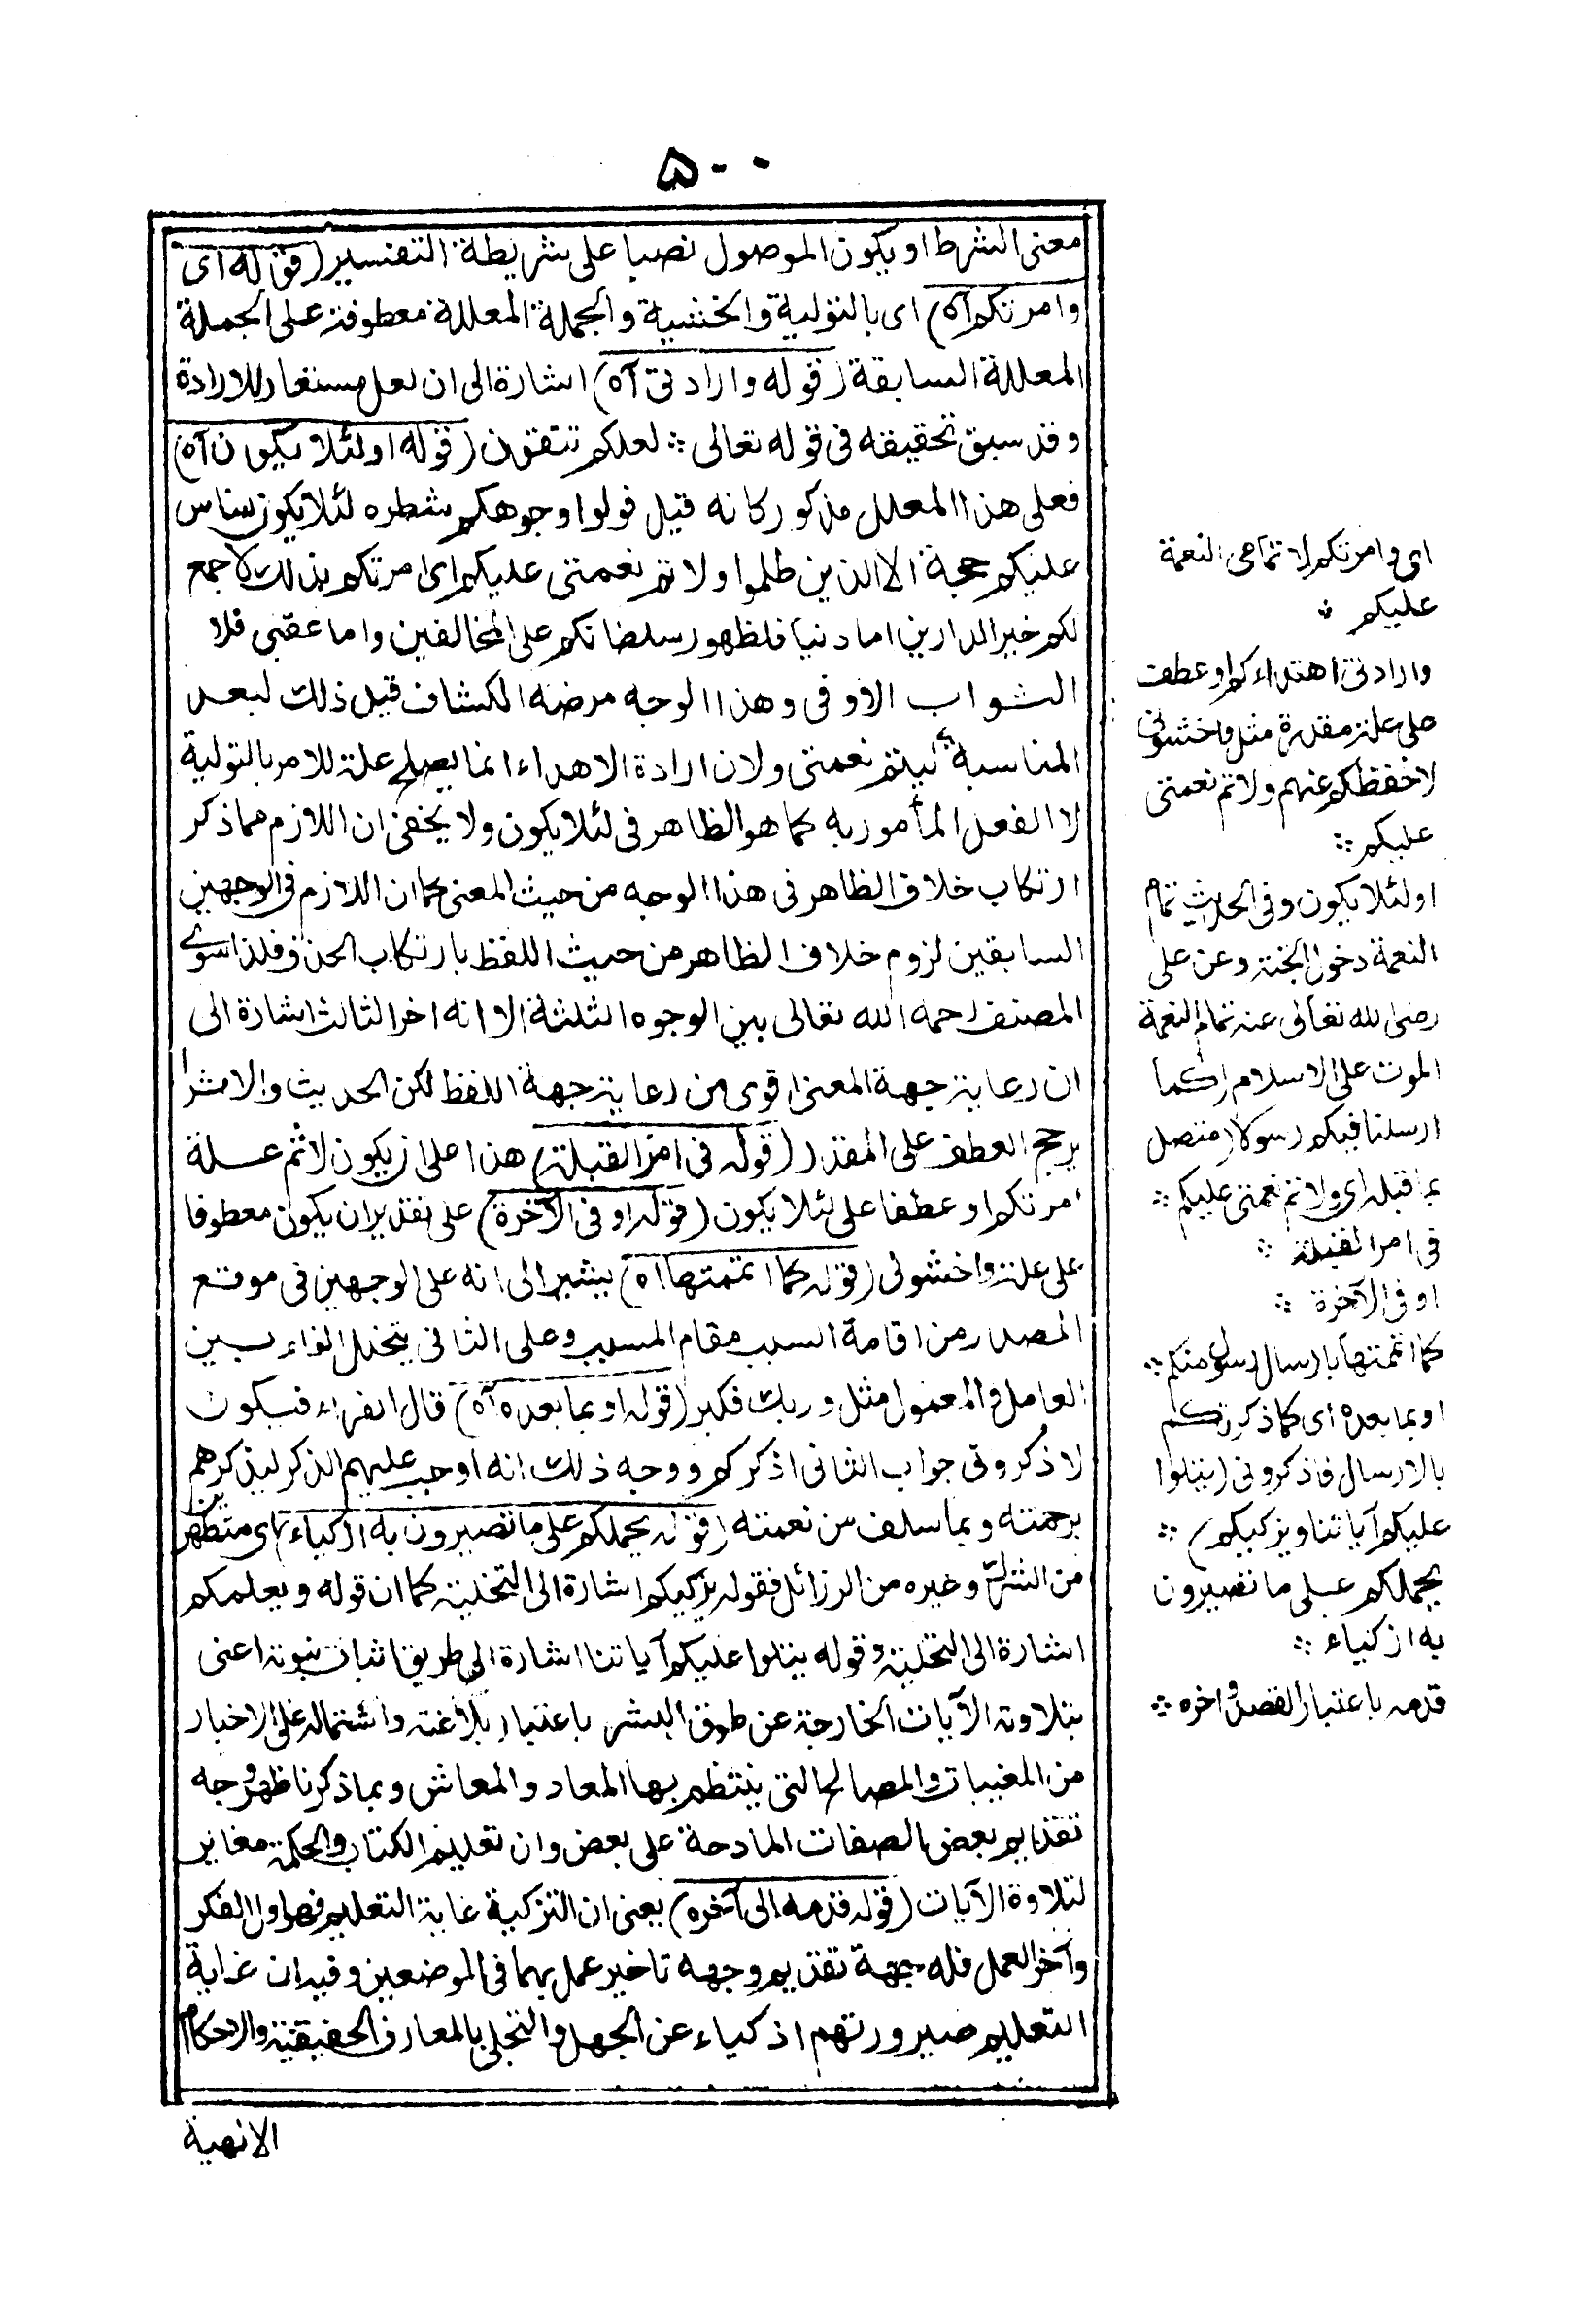 ۵۰۰
معنى الشرط او يكون الموصول نصبا على شريطة التفسير (قوله اى
وامرتكم آه) اى بالتولية والخشية والجملة المعللة معطوفة على الجملة
المعللة السابقة (قوله وارادتى آه) اشارة الى ان لعل مستعار للارادة
وقد سبق تحقيقه فى قوله تعالى ؞ لعلكم تتقون (قوله او لئلا يكون آه)
فعلى هذا المعلل مذكور كانه قيل فولوا وجوهكم شطره لئلا يكون للناس
عليكم حجة الا الذين ظلموا ولا تم نعمتى عليكم اى امرتكم بذلك لاجمع
لكم خير الدارين اما دنيا فلظهور سلطانكم على المخالفين واما عقبى فلا
الثواب الاوفى وهذا الوجه مرضه الكشاف قيل ذلك لبعد
المناسبة ليتم نعمتى ولان ارادة الاهداء انما يصلح علة للامر بالتولية
لا الفعل المأمور به كما هو الظاهر فى لئلا يكون ولا يخفى ان اللازم مما ذكر
ارتكاب خلاف الظاهر فى هذا الوجه من حيث المعنى كما ان اللازم فى الوجهين
السابقين لزوم خلاف الظاهر من حيث اللفظ بارتكاب الحذف فلذا سوے
المصنف رحمه الله تعالى بين الوجوه الثلثة الا انه اخر الثالث اشارة الى
ان رعاية جهة المعنى اقوى من رعاية جهة اللفظ لكن الحديث والاثرا
يرجح العطف على المقدر (قوله فى امر القبلة) هذا على ان يكون لاتم علة
امرتكم او عطفا على لئلا يكون (قوله او فى الآخرة) على تقدير ان يكون معطوفا
على علة واخشونى (قوله كما اتممتها اه) يشير الى انه على الوجهين فى موقع
المصدر من اقامة السبب مقام المسبب وعلى الثانى يتخلل الفاء بين
العامل والمعمول مثل وربك فكبر (قوله او بما بعده آه) قال الفراء فيكون
لاذكرونى جواب الثانى اذكركم ووجه ذلك انه اوجب عليهم الذكر ليذكرهم
برحمته وبما سلف من نعمته (قوله يحملكم على ما تصيرون به ازكياء) اى متطهرين
من الشرك وغيره من الرزائل فقوله يزكيكم اشارة الى التخلية كما ان قوله ويعلمكم
اشارة الى التحلية وقوله يتلوا عليكم آياتنا اشارة الى طريق اثبات نبوته اعنى
بتلاوته الآيات الخارجة عن طوق البشر باعتبار بلاغته واشتماله على الاخبار
من المغيبات والمصالح التى ينتظم بها المعاد والمعاش وبما ذكرنا ظهر وجه
تقديم بعض الصفات المادحة على بعض وان تعليم الكتاب والحكمة مغاير
لتلاوة الآيات (قوله قدمه الى آخره) يعنى ان التزكية غاية التعليم فهو اول الفكر
وآخر العمل فله جهة تقديم وجهه تاخير عمل بهما فى الموضعين وفيه ان غاية
التعليم صيرورتهم اذكياء عن الجهل والتحلى بالمعارف الحقيقية والاحكام
الانهية
اى وامرتكم لا تمامى النعمة
عليكم ؞
وارادتى اهتداءكم او عطف
على علة مقدرة مثل واخشونى
لاحفظكم عنهم ولاتم نعمتى
عليكم ؞
او لئلا يكون وفى الحديث تمام
النعمة دخول الجنة وعن على
رضى الله تعالى عنه تمام النعمة
الموت على الاسلام (كما
ارسلنا فيكم رسولا) متصل
بما قبله اى ولاتم نعمتى عليكم ؞
فى امر القبلة ؞
او فى الآخرة ؞
كما اتممتها بارسال رسول منكم ؞
او بما بعده اى كما ذكرتكم
بالارسال فاذكرونى (يتلوا
عليكم آياتنا ويزكيكم) ؞
يحملكم على ما تصيرون
به ازكياء ؞
قدمه باعتبار القصد واخره ؞